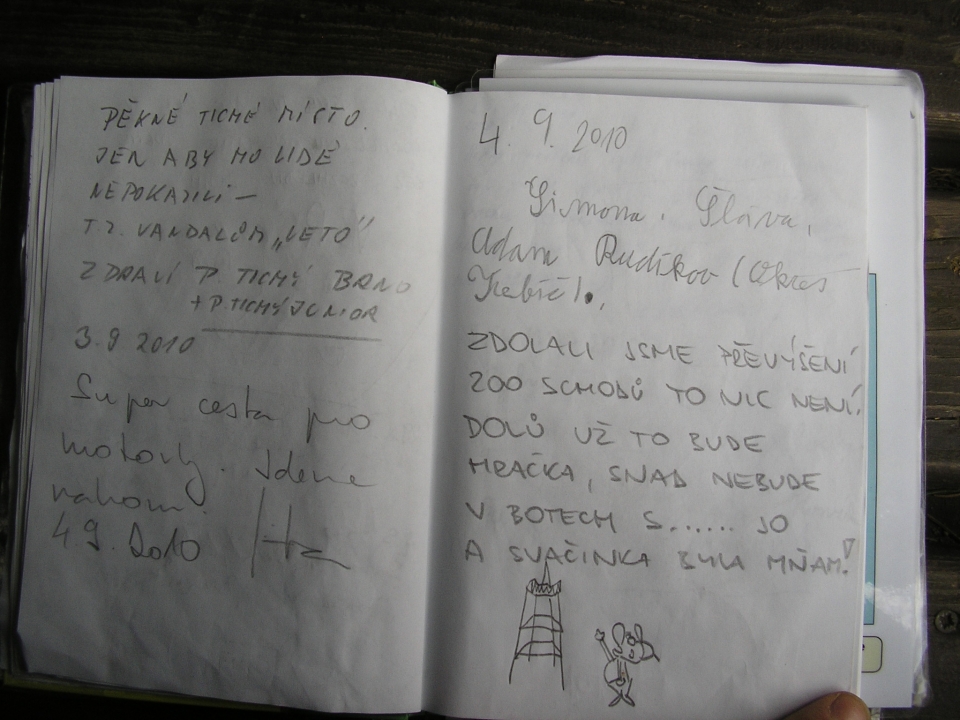 PĚKNÉ TICHÉ MÍSTO.
JEN ABY HO LIDÉ
NEPOKAZILI –
T.Z. VANDALŮM „VETO"
ZDRAVÍ P TICHÝ BRNO
+ P. TICHÝ JUNIOR
3.9 2010
Super cesta pro
motorky. Jdeme
nahoru.
4.9. 2010
4. 9. 2010
Simona, Sláva,
Adam Rudíkov (Okres
Třebíč).
ZDOLALI JSME PŘEVÝŠENÍ
200 SCHODŮ TO NIC NENÍ.
DOLŮ UŽ TO BUDE
HRAČKA, SNAD NEBUDE
V BOTECH S...... JO
A SVAČINKA BYLA MŇAM!